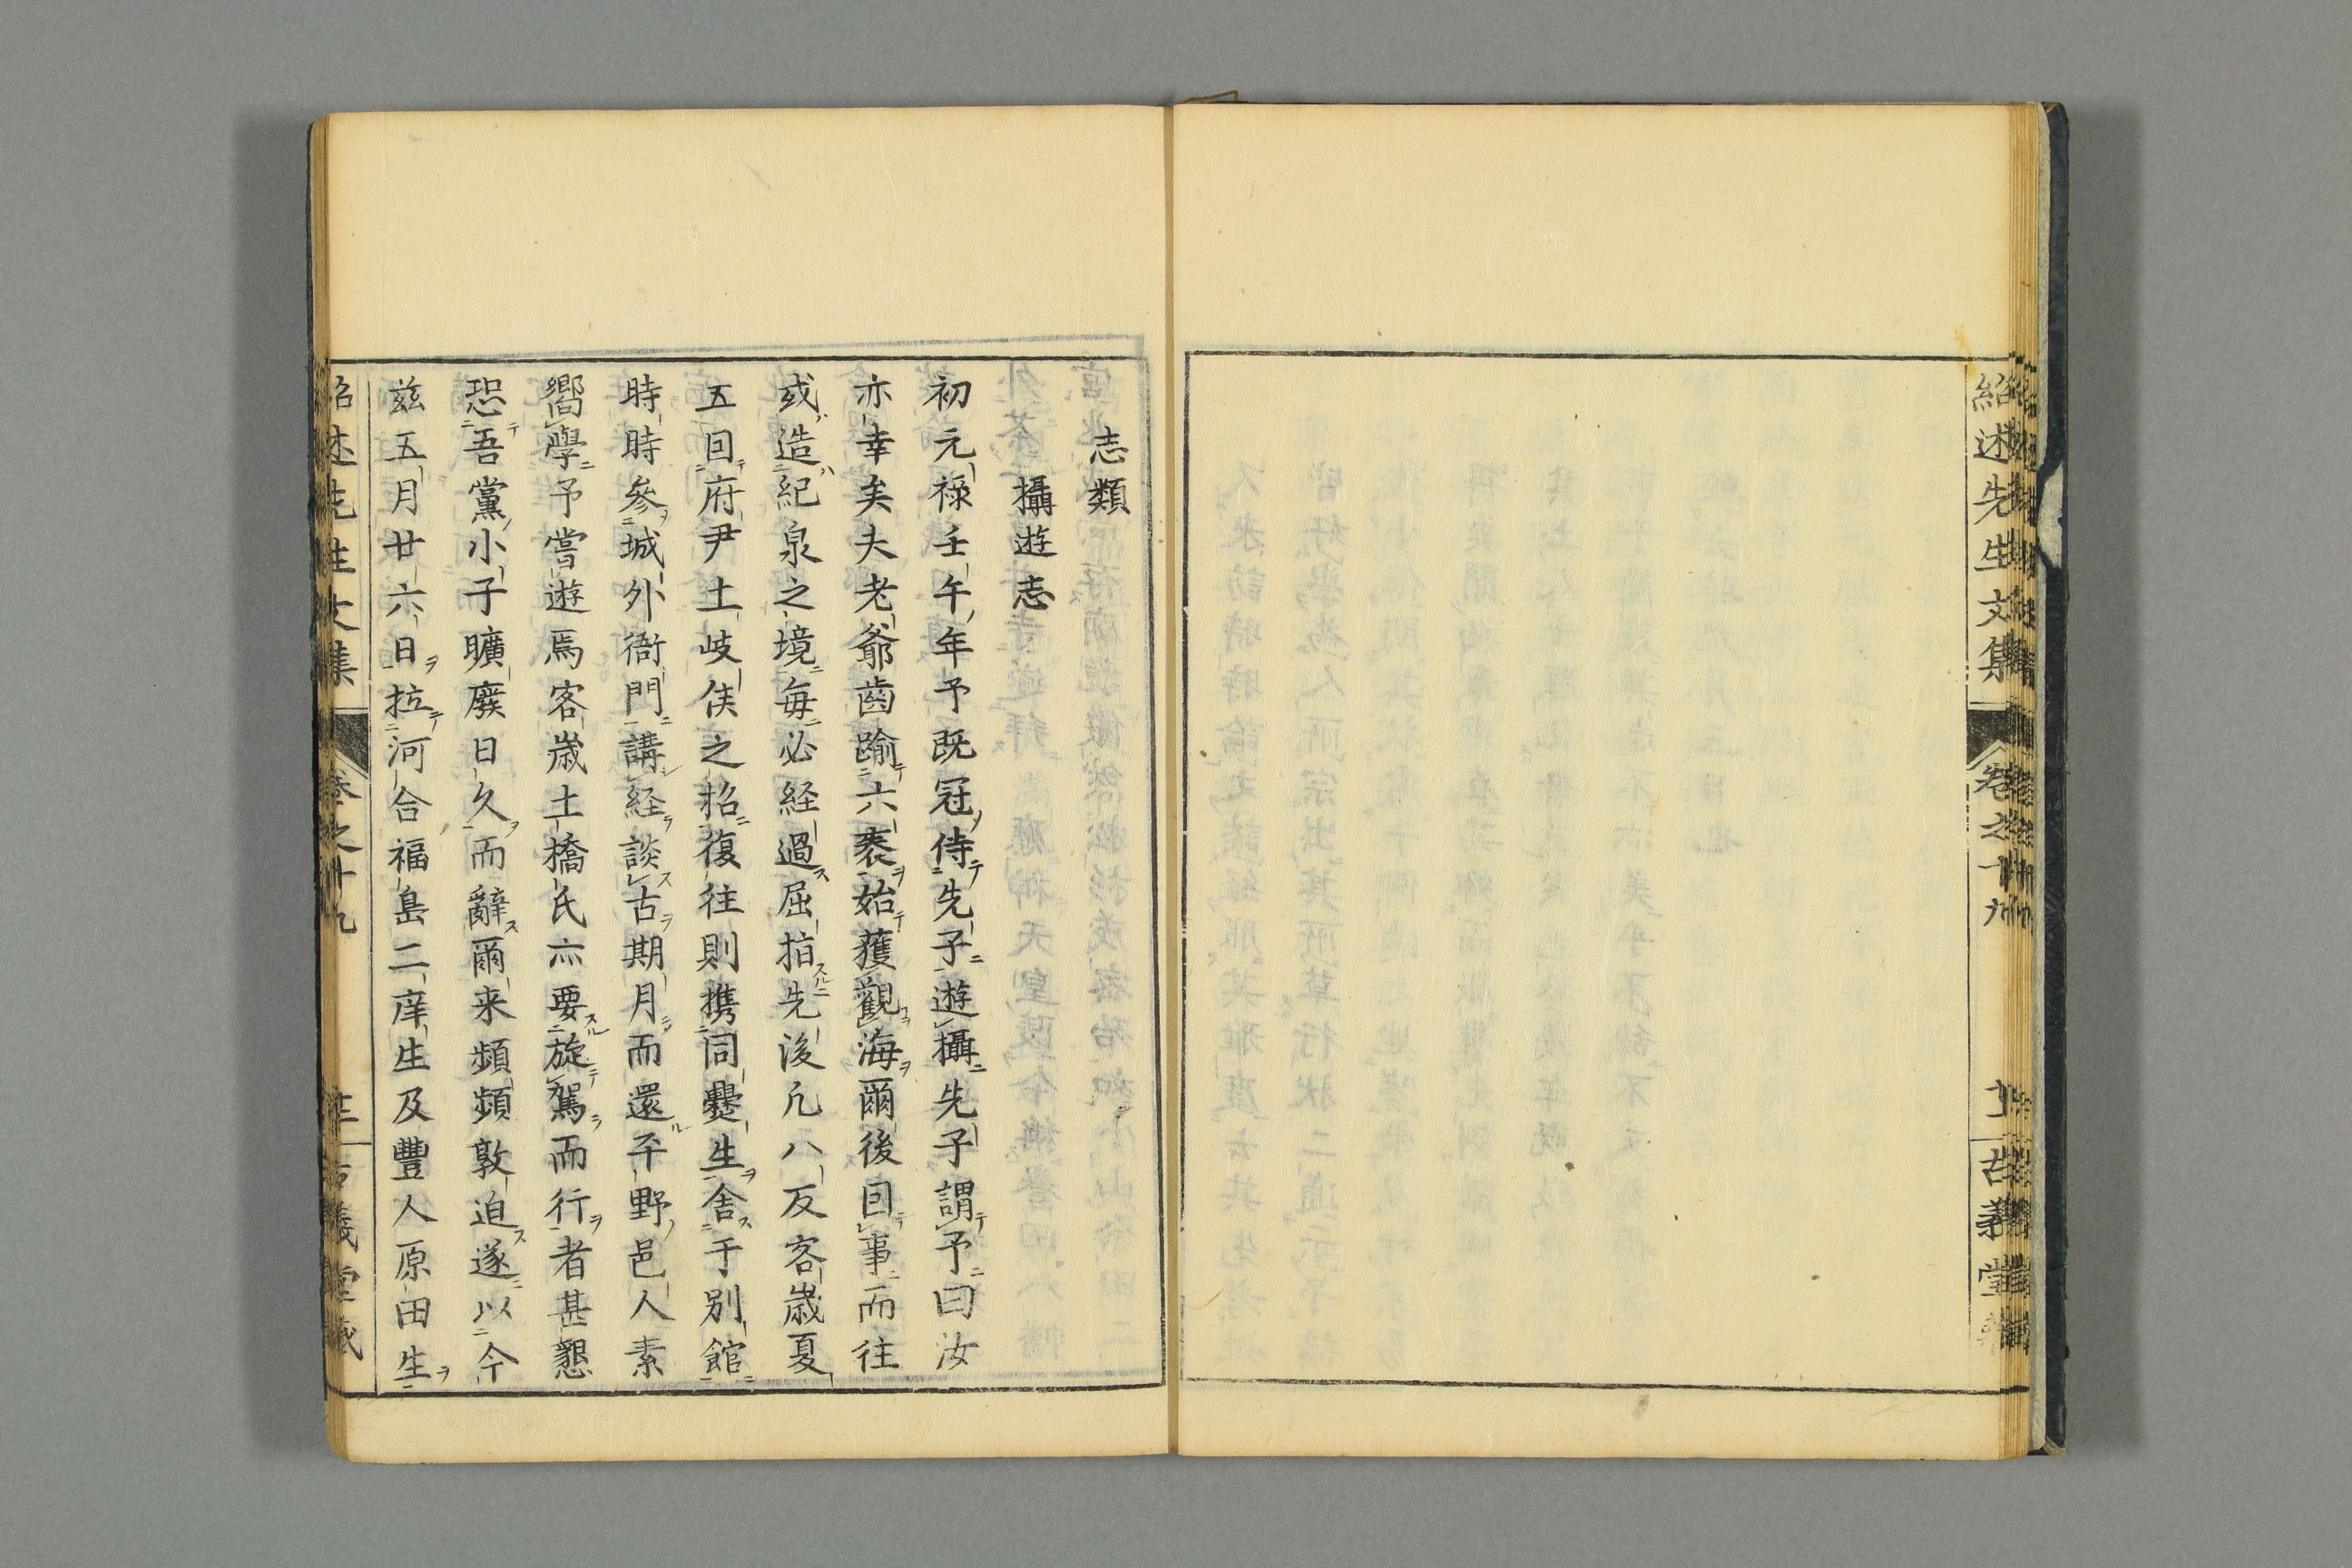 紹述先生文集 卷之十九 古義堂藏
志類
攝遊志
初元祿壬午年予既冠侍先子遊攝先子謂予曰汝
亦幸矣夫老爺齒踰六袠始獲觀海爾後囙事而往
或造紀泉之境每必経過屈指先後凢八反客歳夏
五囙府尹土岐侯之招復往則携同爨生舎于別館
時時參城外衙門講経談古期月而還平野邑人素
嚮學予嘗遊焉客歳土橋氏亦要旋駕而行者甚懇
恐吾黨小子曠廢日久而辭爾来頻頻敦迫遂以今
茲五月廿六日拉河合福島二庠生及豐人原田生
紹述先生文集 卷之十九 古義堂藏